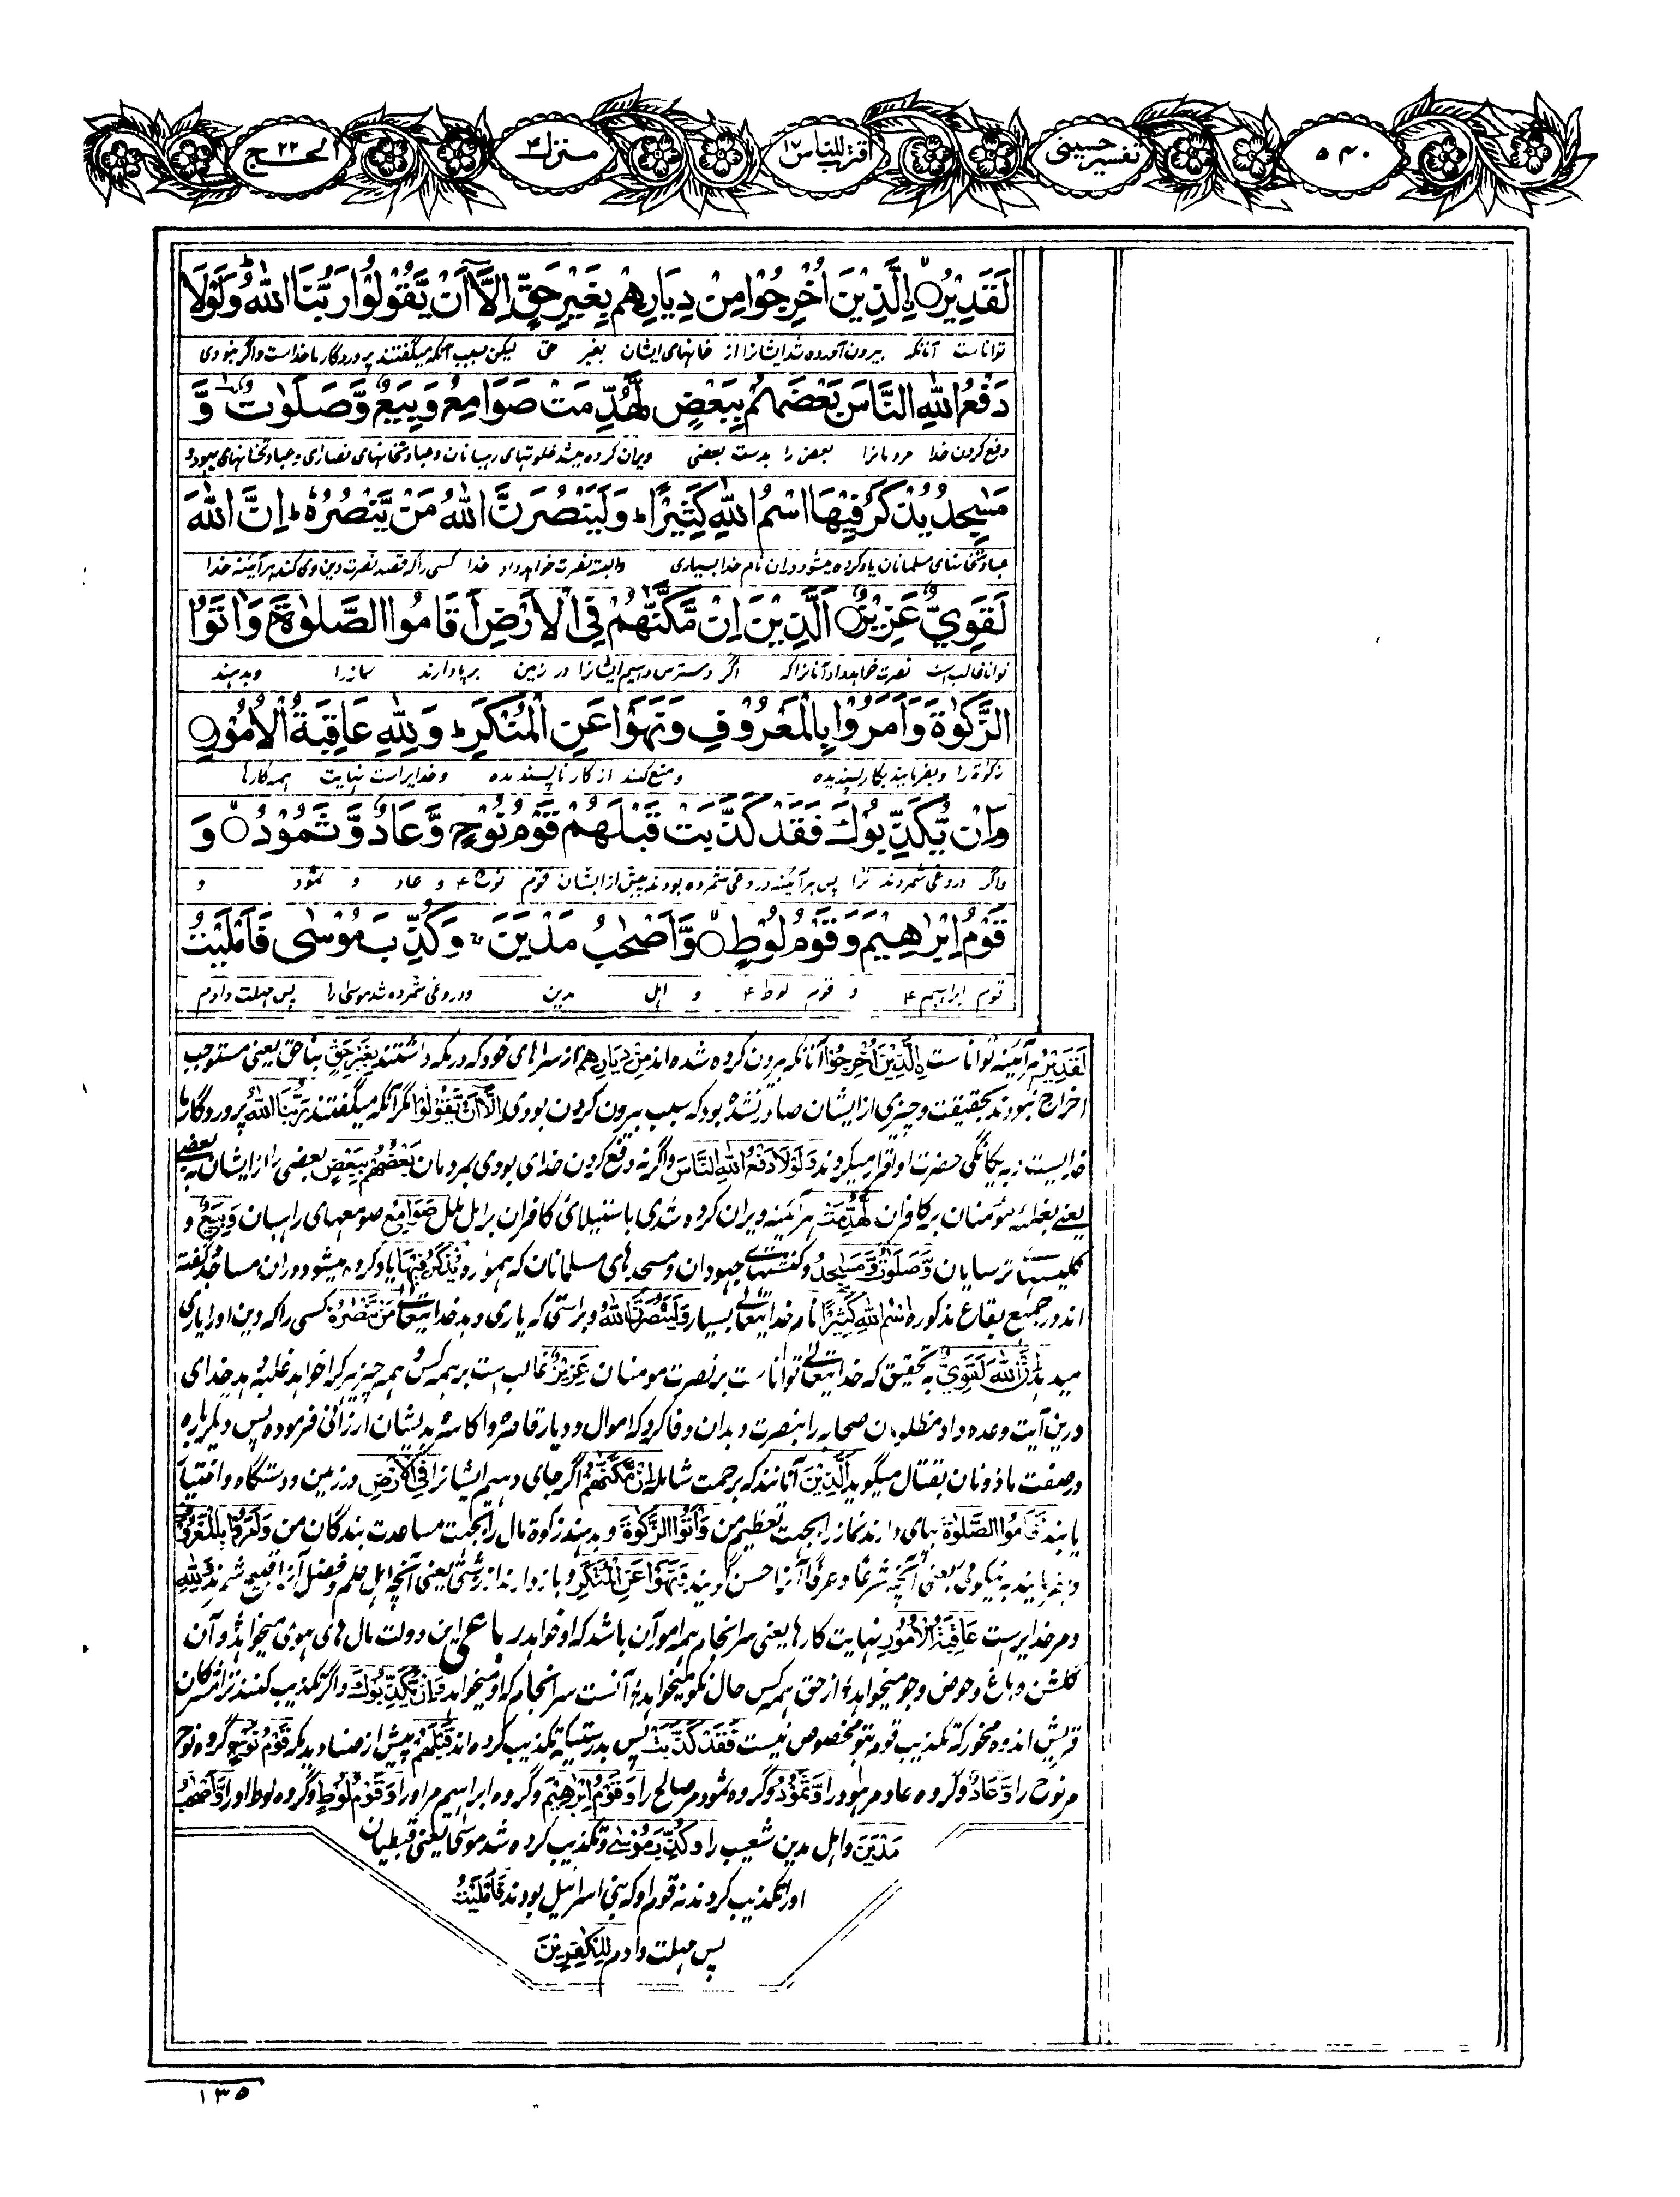 ۵۴۰
تفسیر حسینی
اقترب للناس ۱۷
منزل ۴
الحج ۲۲
لَقَدِيْرُۨ ۙ الَّذِيْنَ اُخْرِجُوْا مِنْ دِيَارِهِمْ بِغَيْرِ حَقٍّ اِلَّاۤ اَنْ يَّقُوْلُوْا رَبُّنَا اللّٰهُ ؕ وَلَوْلَا
تواناست آنانکه بیرون آورده شد ایشانرا از خانهای ایشان بغیر حق لیکن بسبب آنکه میگفتند پروردگار ما خداست و اگر نبودی
دَفْعُ اللّٰهِ النَّاسَ بَعْضَهُمْ بِبَعْضٍ لَّهُدِّمَتْ صَوَامِعُ وَبِيَعٌ وَّصَلَوٰتٌ وَّ
دفع کردن خدا مردمانرا بعض را بدست بعضی ویران کرده میشد خلوتهای رهبانان و عبادتخانهای نصاری و عبادتخانهای یهود و
مَسٰجِدُ يُذْكَرُ فِيْهَا اسْمُ اللّٰهِ كَثِيْرًا ؕ وَلَيَنْصُرَنَّ اللّٰهُ مَنْ يَّنْصُرُهٗ ؕ اِنَّ اللّٰهَ
عبادتخانهای مسلمانان یاد کرده میشود دران نام خدا بسیاری و البته نصرت خواهد داد خدا کسی را که قصد نصرت دین وی کند هر آئینه خدا
لَقَوِيٌّ عَزِيْزٌ ۝ اَلَّذِيْنَ اِنْ مَّكَّنّٰهُمْ فِى الْاَرْضِ اَقَامُوا الصَّلٰوةَ وَاٰتَوُا
توانا غالب است نصرت خواهد داد آنانرا که اگر دسترس دهیم ایشانرا در زمین برپا دارند نماز را و بدهند
الزَّكٰوةَ وَاَمَرُوْا بِالْمَعْرُوْفِ وَنَهَوْا عَنِ الْمُنْكَرِ ؕ وَلِلّٰهِ عَاقِبَةُ الْاُمُوْرِ ۝
زکوٰة را و بفرمایند بکار پسندیده و منع کنند از کار ناپسندیده و خدایراست نهایت همه کارها
وَاِنْ يُّكَذِّبُوْكَ فَقَدْ كَذَّبَتْ قَبْلَهُمْ قَوْمُ نُوْحٍ وَّعَادٌ وَّثَمُوْدُ ۝ وَ
و اگر دروغی شمردند ترا پس هر آئینه دروغی شمرده بودند پیش از ایشان قوم نوح ۴ و عاد و ثمود و
قَوْمُ اِبْرٰهِيْمَ وَقَوْمُ لُوْطٍ ۝ وَّاَصْحٰبُ مَدْيَنَ ۚ وَكُذِّبَ مُوْسٰى فَاَمْلَيْتُ
قوم ابراهیم ۴ و قوم لوط ۴ و اهل مدین و دروغی شمرده شد موسی را پس مهلت دادم
لَقَدِيْرُ هر آئینه تواناست الَّذِيْنَ اُخْرِجُوْا آنانکه بیرون کرده شده اند مِنْ دِيَارِهِمْ از سراهای خود که در مکه داشتند بِغَيْرِ حَقٍّ بناحق یعنی مستوجب
اخراج نبودند بحقیقت و چیزی از ایشان صادر نشده بود که سبب بیرون کردن بودی اِلَّا اَنْ يَّقُوْلُوْا مگر آنکه میگفتند رَبُّنَا اللّٰهُ پروردگار ما
خدایست و به یگانگی حضرت او اقرار میکردند وَلَوْلَا دَفْعُ اللّٰهِ النَّاسَ و اگر نه دفع کردن خدای بودی مردمان بَعْضَهُمْ بِبَعْضٍ بعضی را از ایشان به بعضے
یعنی بغلبهٔ مؤمنان بر کافران لَّهُدِّمَتْ هر آئینه ویران کرده شدی باستیلای کافران بر اهل ملل صَوَامِعُ صومعهای راهبان وَبِيَعٌ و
کلیساهای ترسایان وَّصَلَوٰتٌ وَّمَسٰجِدُ و کنشتهای جهودان و مسجدهای مسلمانان که همواره يُذْكَرُ فِيْهَا یاد کرده میشود دران مساجد و گفته
اند در جمیع بقاع مذکوره اسْمُ اللّٰهِ كَثِيْرًا نام خدایتعالٰے بسیار وَلَيَنْصُرَنَّ اللّٰهُ و براستی که یاری دهد خدایتعالٰے مَنْ يَّنْصُرُهٗ کسی را که دین او را یاری
میدهد اِنَّ اللّٰهَ لَقَوِيٌّ به تحقیق که خدایتعالٰے تواناست بر نصرت مومنان عَزِيْزٌ غالب است بر همه کس و همه چیز هر کرا خواهد غلبه دهد خدای
درین آیت وعده داد مظلومان صحابه را بنصرت و بدان وفا کرد که اموال و دیار قاصره و اکاسره بدیشان ارزانی فرموده پس دیگر باره
در صفت ماذونان بقتال میگوید اَلَّذِيْنَ آنانند که برحمت شامله اِنْ مَّكَّنّٰهُمْ اگر جای دهیم ایشانرا فِى الْاَرْضِ در زمین و دستگاه و اختیار
یابند اَقَامُوا الصَّلٰوةَ بپای دارند نماز را بجهت تعظیم من وَاٰتَوُا الزَّكٰوةَ و بدهند زکوة مال را بجهت مساعدت بندگان من وَاَمَرُوْا بِالْمَعْرُوْفِ
و بفرمایند به نیکوئی یعنی آنچه شرعا و عرفا آنرا حسن گویند وَنَهَوْا عَنِ الْمُنْكَرِ و باز دارند از زشتی یعنی آنچه اهل علم و فضل آنرا قبیح شمرند وَلِلّٰهِ
و مر خدایراست عَاقِبَةُ الْاُمُوْرِ نهایت کارها یعنی سرانجام همه امور آن باشد که او خواهد رباعی این دولت مال های و هوی میخواهد و آن
گلشن و باغ و حوض و جو میخواهد از حق همه کس حال نکو میخواهد آنست سرانجام که او میخواهد وَاِنْ يُّكَذِّبُوْكَ و اگر تکذیب کنند ترا مشرکان
قریش اندوه مخور که تکذیب قوم بتو مخصوص نیست فَقَدْ كَذَّبَتْ پس بدرستیکه تکذیب کرده اند قَبْلَهُمْ پیش از صنادید مکه قَوْمُ نُوْحٍ گروه نوح
مر نوح را وَّعَادٌ و گروه عاد مر هود را وَّثَمُوْدُ و گروه ثمود مر صالح را وَقَوْمُ اِبْرٰهِيْمَ و گروه ابراهیم مر او را وَقَوْمُ لُوْطٍ و گروه لوط او را وَّاَصْحٰبُ
مَدْيَنَ و اهل مدین شعیب را وَكُذِّبَ مُوْسٰے و تکذیب کرده شد موسٰی یعنی قبطیان
او را تکذیب کردند نه قوم او که بنی اسرائیل بودند فَاَمْلَيْتُ
پس مهلت دادم لِلْكٰفِرِيْنَ
۱۳۵